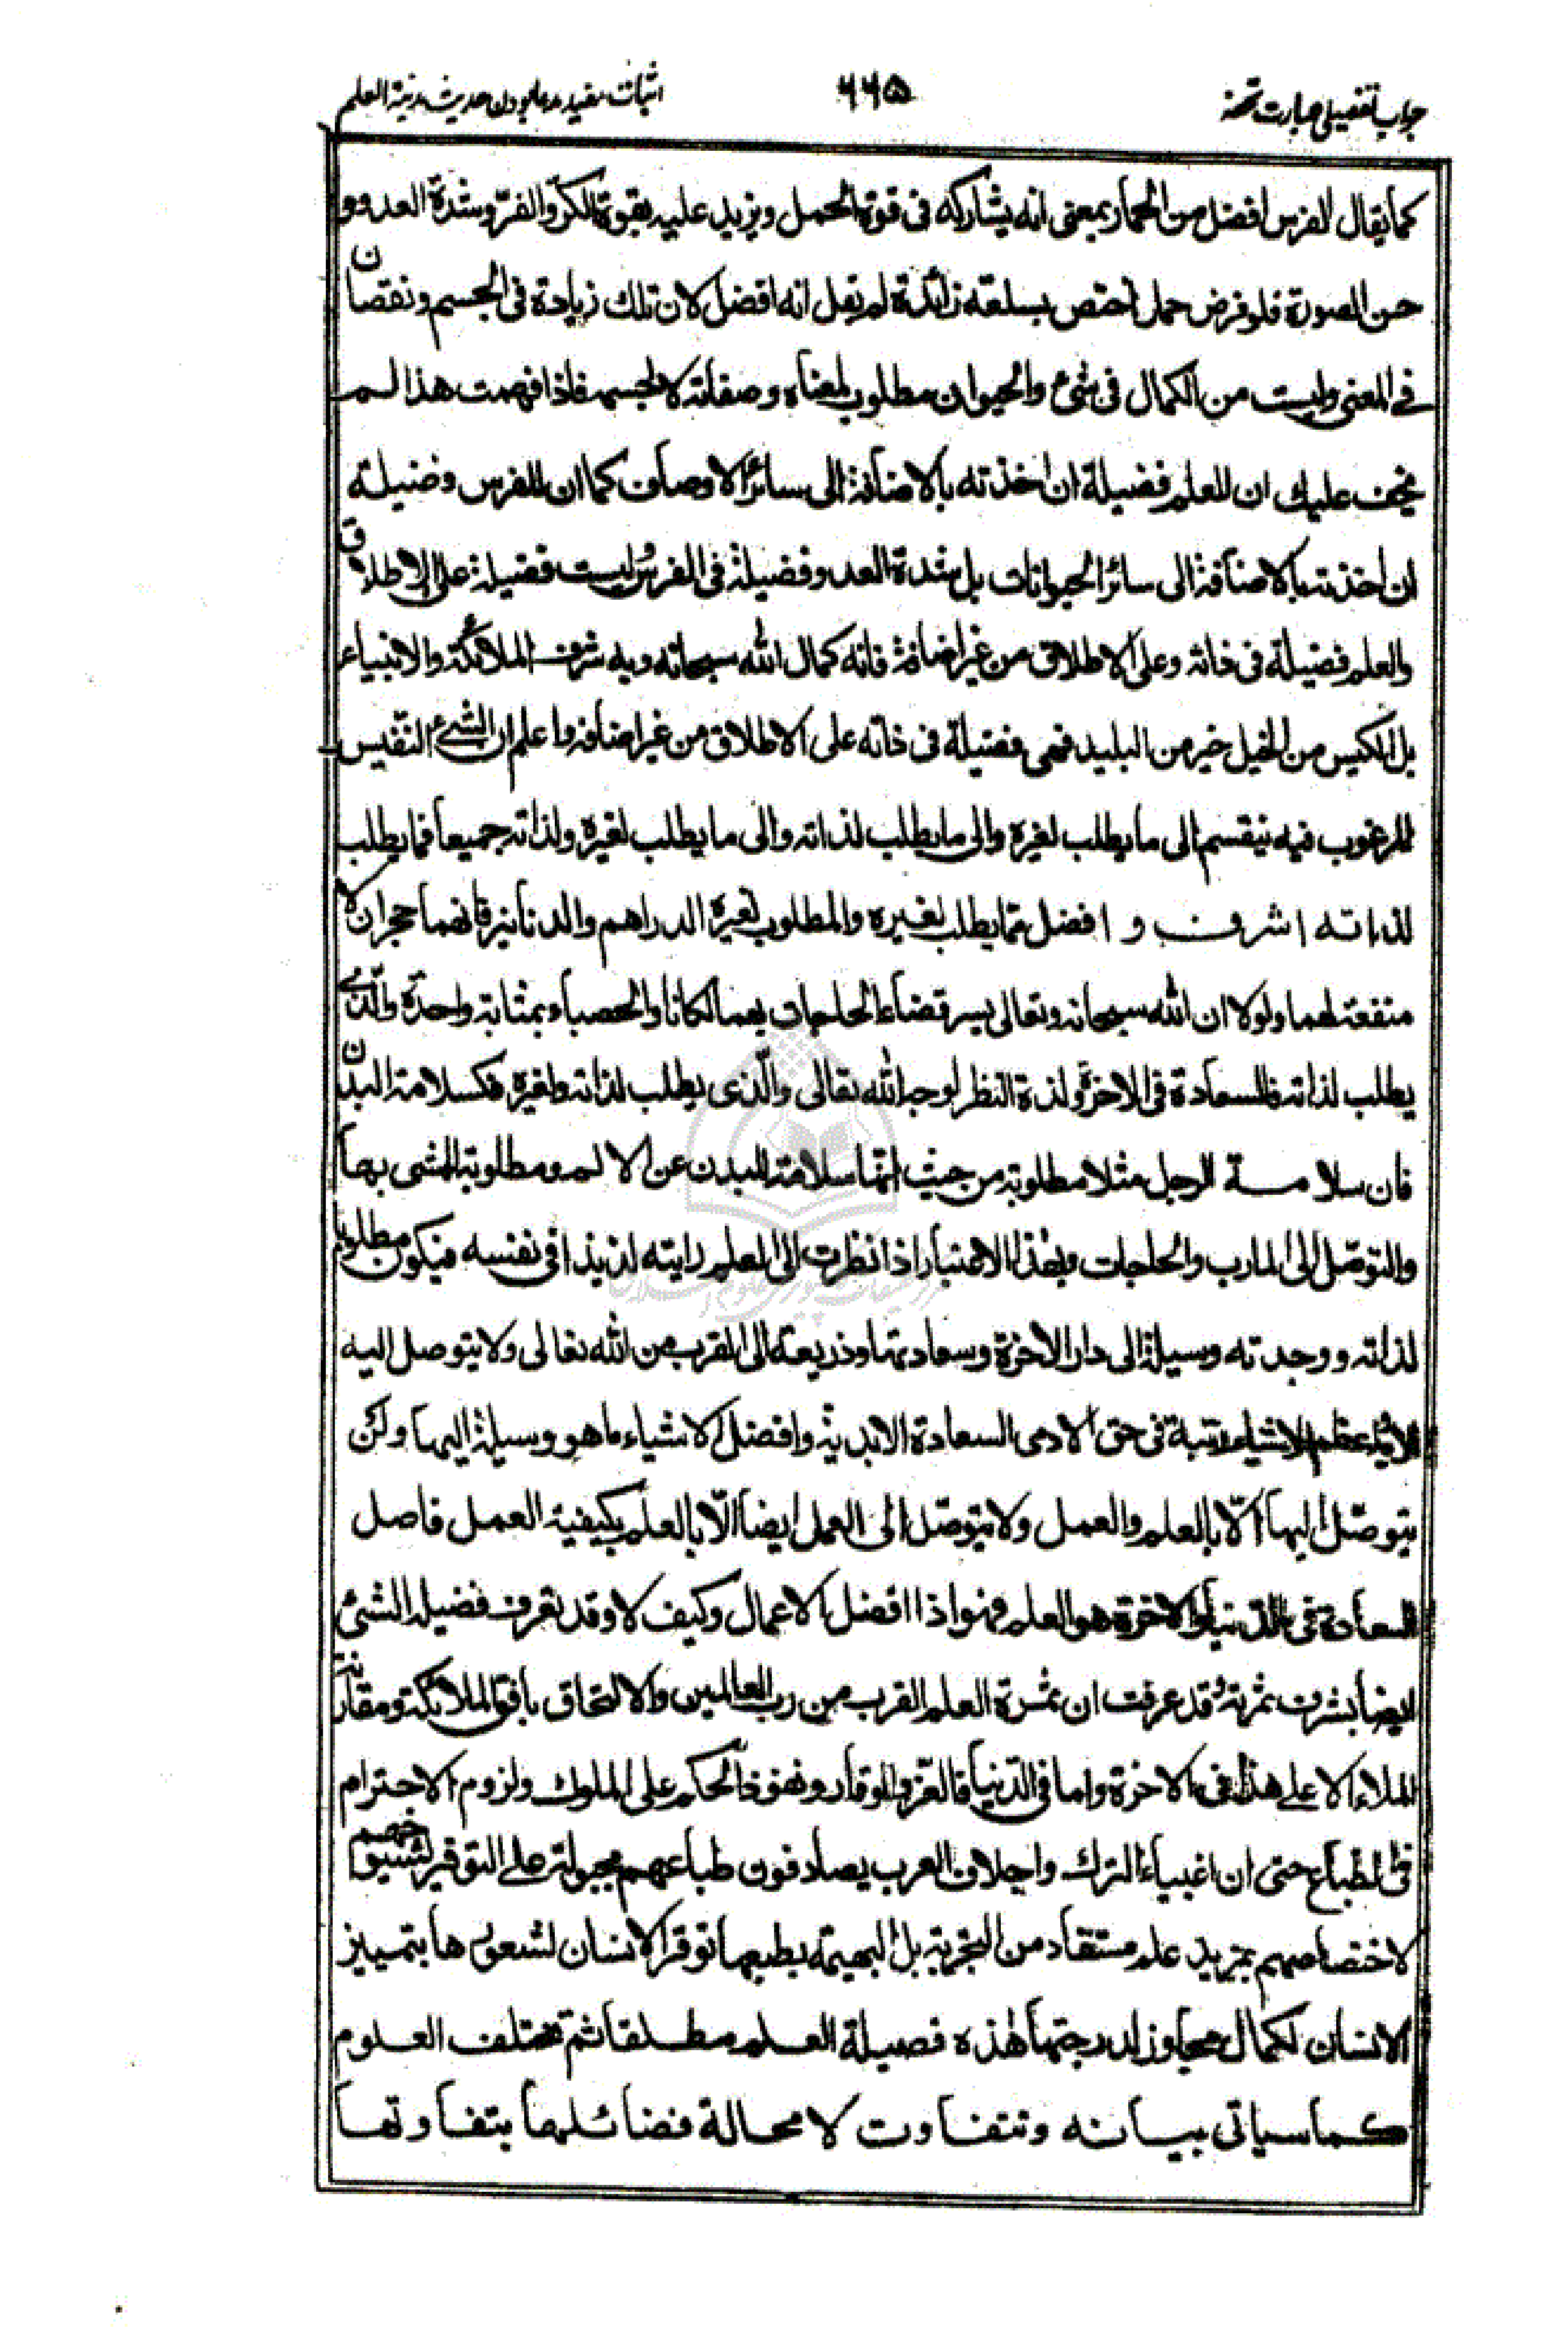 جواب تفصیلی عبارت تحفه
۶۶۵
اثبات مفید مدعا بودن حدیث مدینة العلم
كما يقال الفرس افضل من الحمار بمعنى انه يشاركه فى قوة الحمل ويزيد عليه بقوة الكرّ والفرّ وشدة العدو و
حسن الصورة فلو فرض حمار اختص بسلعة زائدة لم يقل انه افضل لان تلك زيادة فى الجسم ونقصان
فى المعنى وليست من الكمال فى شئ والحيوان مطلوب لمعناه وصفاته لا لجسمه فاذا فهمت هذا لم
يخف عليك ان للعلم فضيلة ان اخذته بالاضافة الى سائر الاوصاف كما ان للفرس فضيلة
ان اخذته بالاضافة الى سائر الحيوانات بل شدة العدو فضيلة فى الفرس وليست فضيلة على الاطلاق
والعلم فضيلة فى ذاته وعلى الاطلاق من غير اضافة فانه كمال الله سبحانه وبه شرف الملائكة والانبياء
بل الكيس من الخيل خير من البليد فهى فضيلة فى ذاته على الاطلاق من غير اضافة واعلم ان الشئ النّفيس
المرغوب فيه ينقسم الى ما يطلب لغيره والى ما يطلب لذاته والى ما يطلب لغيره ولذاته جميعا فما يطلب
لذاته اشرف و افضل ممّا يطلب لغيره والمطلوب لغيره الدراهم والدنانير فانهما حجران لا
منفعة لهما ولولا ان الله سبحانه وتعالى يسر قضاء الحاجات بهما لكانا والحصباء بمثابة واحدة والّذى
يطلب لذاته فالسعادة فى الاخرة ولذة النظر لوجه الله تعالى والّذى يطلب لذاته ولغيره فكسلامة البدن
فان سلامة الرجل مثلا مطلوبة من حيث انّها سلامة للبدن عن الالم ومطلوبة للمشى بها
والتوصّل الى المارب والحاجات وبهذا الاعتبار اذا نظرت الى العلم رايته لذيذا فى نفسه فيكون مطلوبا
لذاته ووجدته وسيلة الى دار الاخرة وسعادتها وذريعة الى القرب من الله تعالى ولا يتوصل اليه
الا به واعظم الاشياء رتبة فى حق الادمى السعادة الابدية وافضل الاشياء ما هو وسيلة اليها ولن
يتوصّل اليها الّا بالعلم والعمل ولا يتوصّل الى العمل ايضا الّا بالعلم بكيفية العمل فاصل
السعادة فى الدّنيا والاخرة هو العلم فهو اذا افضل الاعمال وكيف لا وقد تعرف فضيلة الشئ
ايضا بشرف ثمرته وقد عرفت ان ثمرة العلم القرب من رب العالمين والالتحاق بافق الملائكة ومقارنة
الملاء الاعلى هذا فى الاخرة واما فى الدّنيا فالعّز والوقار ونفوذ الحكم على الملوك ولزوم الاحترام
فى الطّباع حتى ان اغبياء الترك واجلاف العرب يصادفون طباعهم مجبولة على التوقير لشيوخهم
لاختصاصهم بمزيد علم مستفاد من التجربة بل البهيمة بطبعها توقر الانسان لشعورها بتمييز
الانسان لكمال مجاوز لدرجتها هذه فضيلة العلم مطلقا ثم تختلف العلوم
كما سياتى بيانه وتتفاوت لا محالة فضائلها بتفاوتها